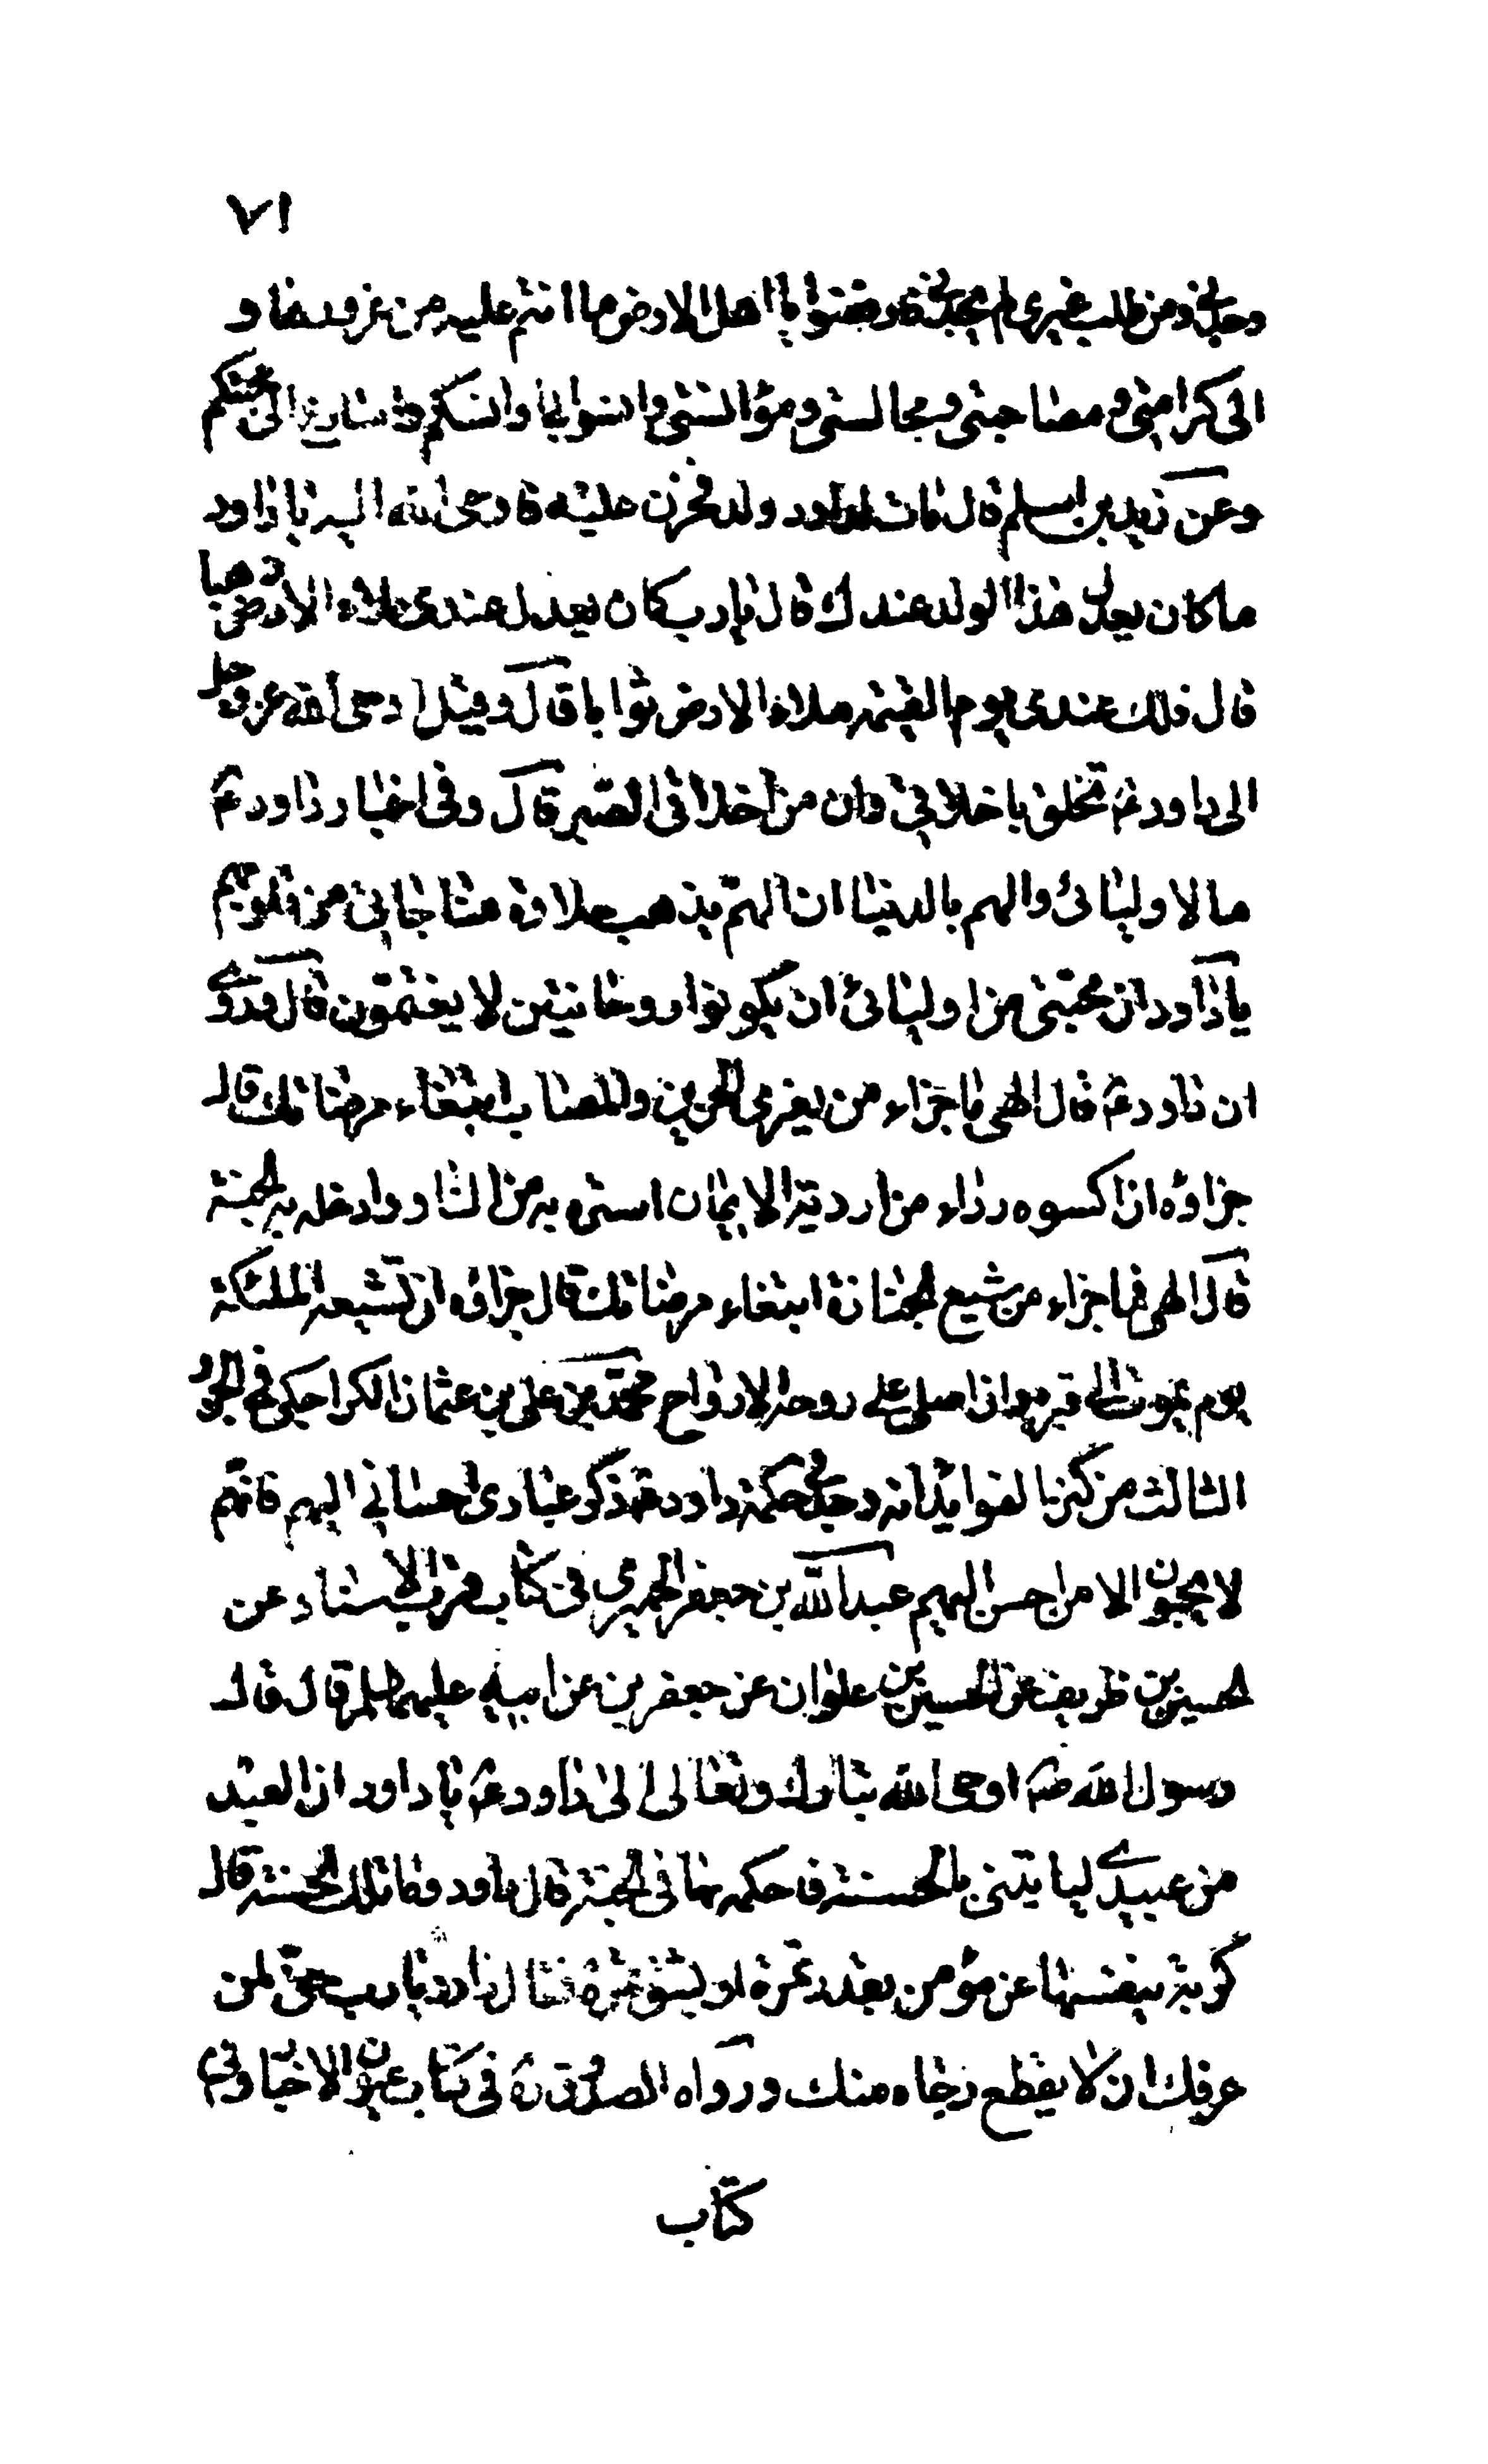 ٧١
وجدني ومن طلب غيري لم يجدني فارفضوا يا اهل الارض ما انتم عليه من غرورها و
الى كرامتي و مصاحبتي و مجالستي و مؤانستي وانسوا بي اوانسكم واسارع الى محبتكم
وعن زيد بن اسلم قال مات لداود ولد فحزن عليه فاوحى الله اليه يا داود
ما كان يعدل هذا الولد عندك قال يا رب كان يعدل عندي ملاء الارض ذهبا
قال فلك عندي يوم القيمة ملاء الارض ثوابا قال وقيل اوحى الله عز وجل
الى داود ع تخلق باخلاقي وان من اخلاقي الصبر قال وفي اخبار داود ع
ما لاوليائي والهم بالدنيا ان الهم يذهب حلاوة مناجاتي من قلوبهم
يا داود ان محبتي من اوليائي ان يكونوا روحانيين لا يغتمون قال وروي
ان داود ع قال الهي ما جزاء من يعزي الحزين والمصاب ابتغاء مرضاتك قال
جزاؤه ان اكسوه رداء من اردية الايمان استره به من النار وادخله به الجنة
قال الهي فما جزاء من شيع الجنازة ابتغاء مرضاتك قال جزاؤه ان تشيعه الملئكة
يوم يموت الى قبره وان اصلي على روحه في الارواح محمد بن علي بن عثمان الكراجكي في الجزء
الثالث من كنز الفوايد انه وجد في حكمة داود ع ذكر عبادي احساني اليهم فانهم
لا يحبون الا من احسن اليهم عبد الله بن جعفر الحميري في كتاب قرب الاسناد عن
الحسن بن ظريف عن الحسين بن علوان عن جعفر بن عن ابيه عليهما السلم قال قال
رسول الله ص اوحى الله تبارك وتعالى الى داود ع يا داود ان العبد
من عبيدي لياتيني بالحسنة فاحكمه بها في الجنة قال داود وما تلك الحسنة قال
كربة ينفسها عن مؤمن بقدر تمرة او بشق تمرة فقال داود يا رب حق لمن
عرفك ان لا يقطع رجاه منك ورواه الصدوق ره في كتاب عيون الاخبار وفي
كتاب